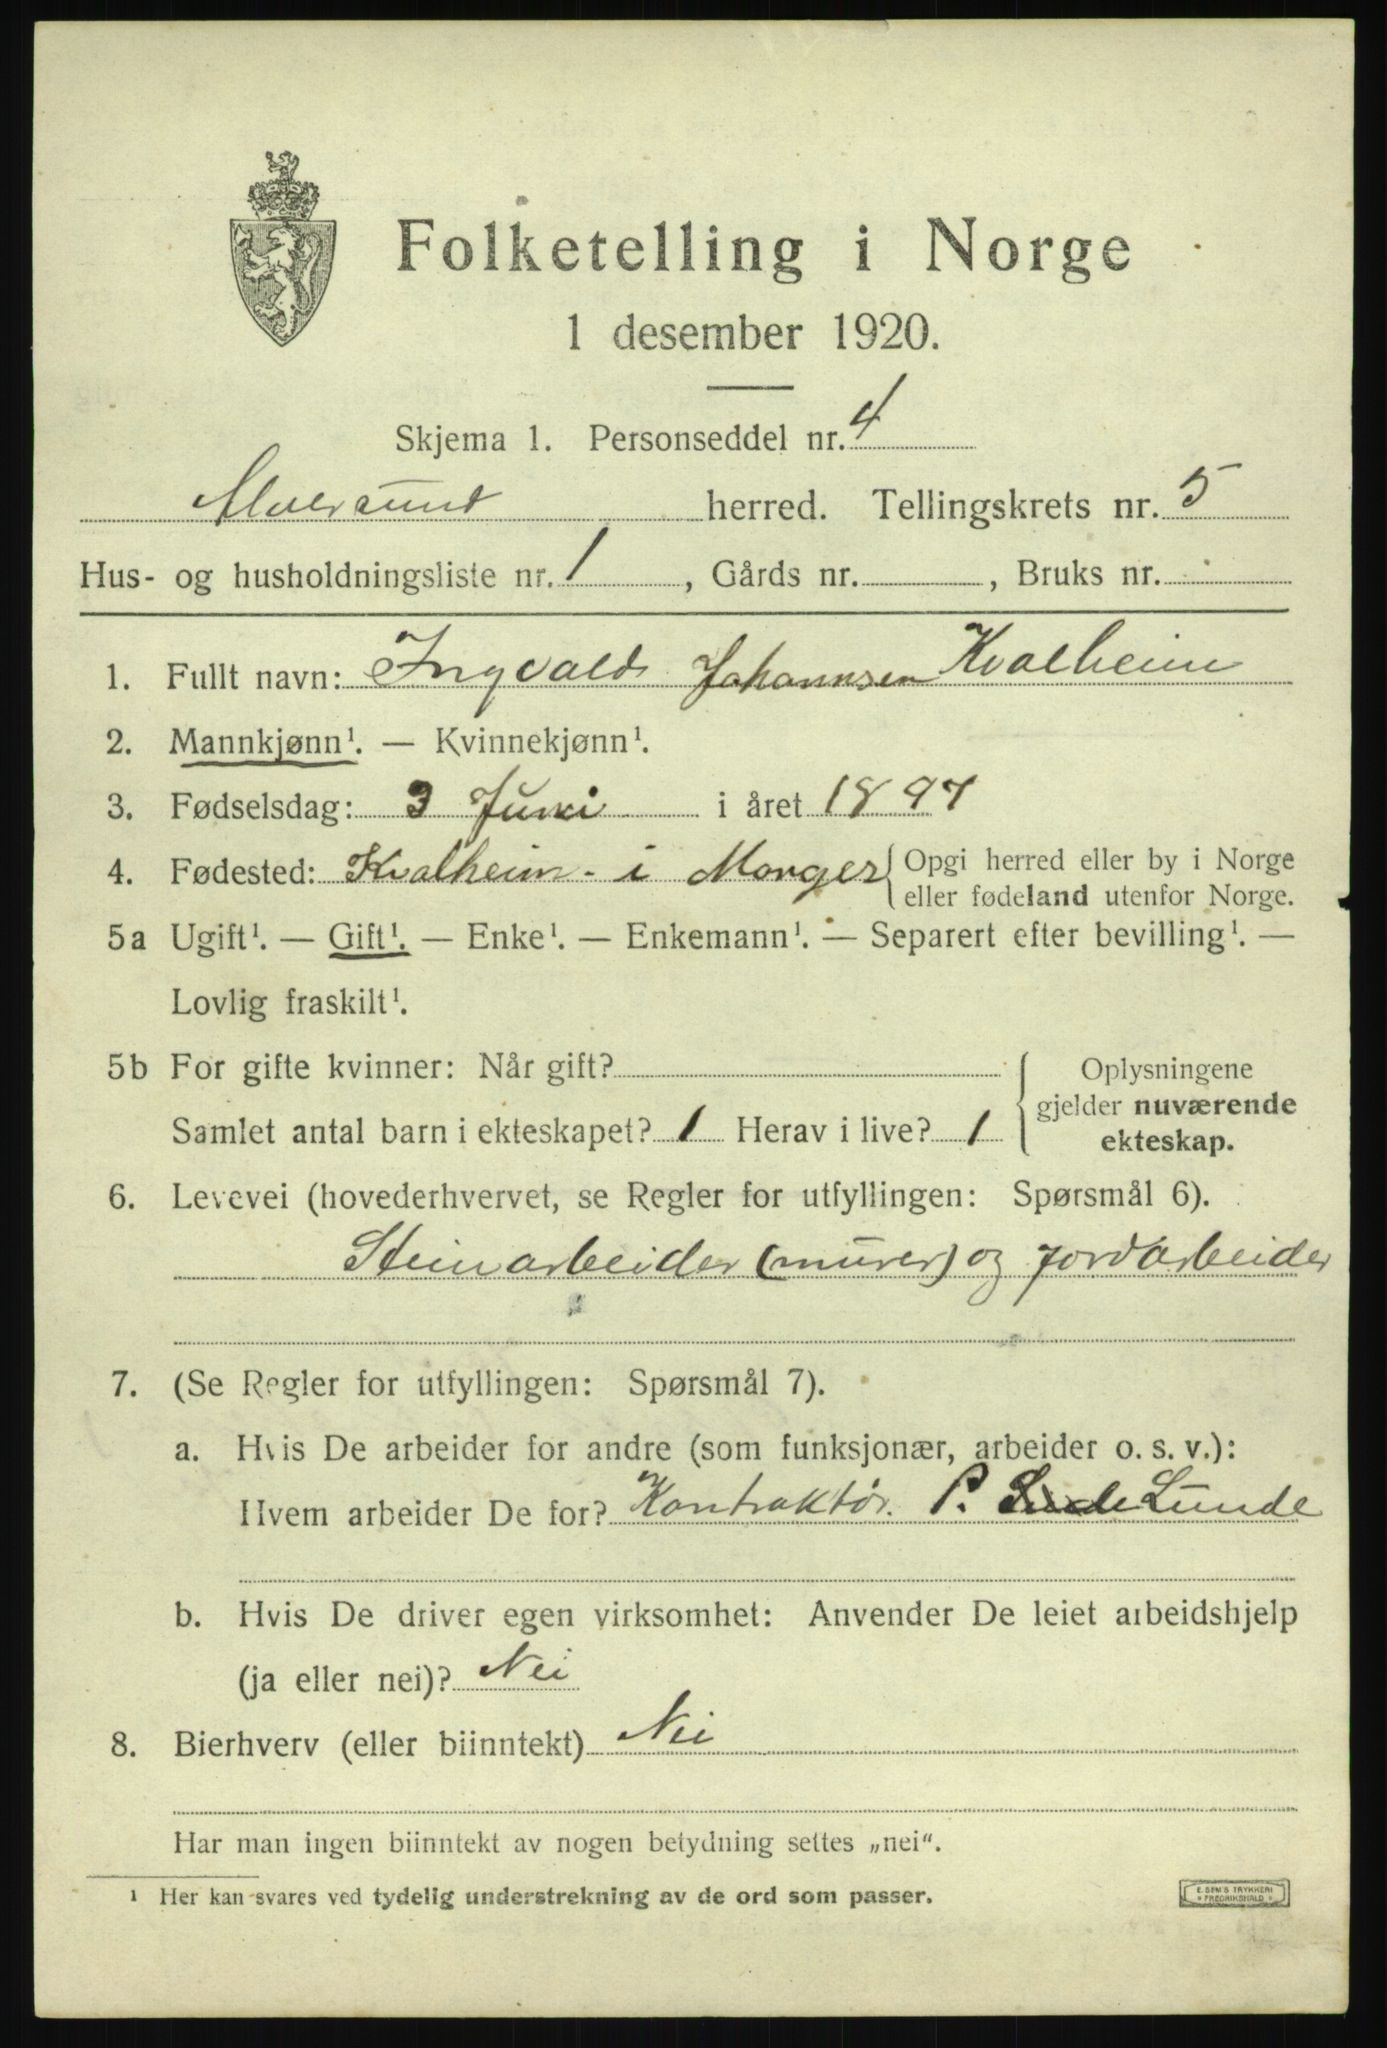 Folketelling i Norge
1 desember 1920.
Skjema 1. Personseddel nr. 4
Alversund herred. Tellingskrets nr. 5
Hus- og husholdningsliste nr. 1, Gårds nr. , Bruks nr.
1. Fullt navn: Ingvald Johannsen Kvalheim
2. Mannkjønn¹. — Kvinnekjønn¹.
3. Fødselsdag: 3 Juni i året 1897
4. Fødested: Kvalheim - i Manger { Opgi herred eller by i Norge
eller fødeland utenfor Norge.
5a Ugift¹. — Gift¹. — Enke¹. — Enkemann¹. — Separert efter bevilling¹. —
Lovlig fraskilt¹.
5b For gifte kvinner: Når gift?
Samlet antal barn i ekteskapet? 1 Herav i live? 1
Oplysningene
gjelder nuværende
ekteskap.
6. Levevei (hovederhvervet, se Regler for utfyllingen: Spørsmål 6).
Steinarbeider (murer) og jordarbeider
7. (Se Regler for utfyllingen: Spørsmål 7).
a. Hvis De arbeider for andre (som funksjonær, arbeider o. s. v.):
Hvem arbeider De for? Kontraktør. P. Lunde
b. Hvis De driver egen virksomhet: Anvender De leiet arbeidshjelp
(ja eller nei)? Nei
8. Bierhverv (eller biinntekt) Nei
Har man ingen biinntekt av nogen betydning settes „nei“.
¹ Her kan svares ved tydelig understrekning av de ord som passer.
E. SEM'S TRYKKERI
FREDRIKSHALD